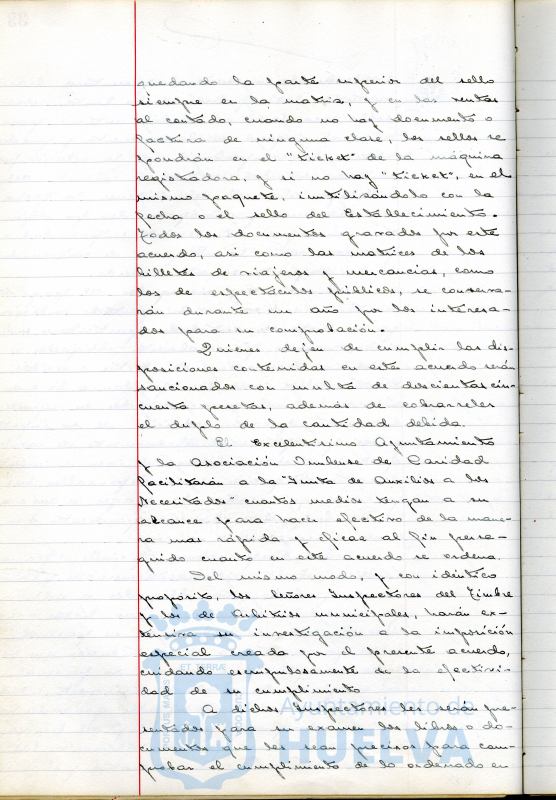 quedando la parte superior del sello
siempre en la matriz, y en las ventas
al contado, cuando no hay documento o
factura de ninguna clase, los sellos se
pondrán en el "ticket" de la máquina
registradora, y si no hay "ticket", en el
mismo paquete, inutilizándolo con la
fecha o el sello del Establecimiento.
Todos los documentos gravados por este
acuerdo, asi como las matrices de los
billetes de viajeros y mercancias, como
los de espectáculos públicos, se conserva-
rán durante un año por los interesa-
dos para su comprobación.
Quienes dejen de cumplir las dis-
posiciones contenidas en este acuerdo serán
sancionados con multa de doscientas cin-
cuenta pesetas, además de cobrarseles
el duplo de la cantidad debida.
El Excelentisimo Ayuntamiento
y la Asociación Onubense de Caridad
facilitarán a la "Junta de Auxilios a los
Necesitados" cuantos medios tengan a su
alcance para hacer efectivo de la mane-
ra mas rápida y eficaz al fin perse-
guido cuanto en este acuerdo se ordena.
Del mismo modo, y con idéntico
propósito, los Señores Inspectores del Timbre
y los de Arbitrios municipales, harán ex-
tensiva su investigación a la imposición
especial creada por el presente acuerdo,
cuidando escrupulosamente de la efectivi-
dad de su cumplimiento
A dichos Inspectores les serán pre-
sentados para su examen los libros o do-
cumentos que les sean precisos para com-
probar el cumplimiento de lo ordenado en
Ayuntamiento de
HUELVA